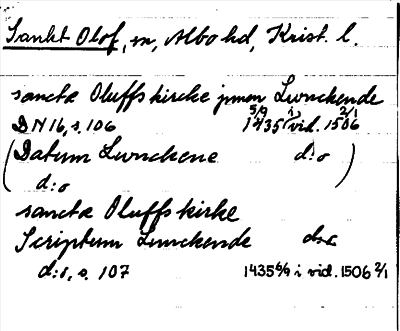 Sankt Olof, sn, Albo hd, Krist. l.
sanctæ Oluffs kircke jnnen Lunckende
DN 16, s. 106 1435 5/9 i vid. 1506 2/1
(Datum Lunckene d:o )
d:o
sancta Oluffs kirke
Scriptum Lunckende d:o
d:o, s. 107 1435 6/9 i vid. 1506 2/1